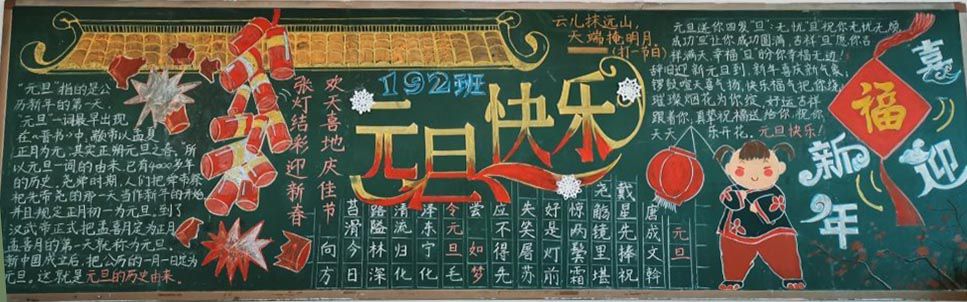 "元旦"指的是公
历新年的第一天.
"元旦"一词最早出现
在《晋书》中,颛帝以孟夏
正月为元,其实正朔元旦之春。所
以元旦一词的由来,已有4000多年
的历史,尧舜时期,人们把
祀先帝尧的那一天当作新年的开始,
并且规定正月初一为元旦。到了
汉武帝正式把孟喜月定为正月
孟喜月的第一天就称为元旦。
新中国成立后,把公历的一月一日定为
元旦。这就是元旦的历史由来.
欢天喜地庆佳节
张灯结彩迎新春
192班
元旦快乐
云儿抹远山,
天端掩明月.
(打一节目)
元旦
唐成文幹
戴星先捧祝
尧觞镜里堪
惊两鬓霜
好是灯前
失笑屠苏
应不得先
尝 如梦
令元旦毛
泽东宁化
清流归化
路隘林深
苔滑今日
向方
元旦送你四发"旦":无忧"旦"祝你无忧无烦
成功"旦"让你成功圆满,吉祥"旦"愿你吉
祥满天,幸福"旦"盼你幸福无边!
辞旧迎新元旦到,新年喜庆新气象;
锣鼓喧天喜气扬,快乐福气把你绕;
璀璨烟花为你绽,好运吉祥
跟着你,真挚祝福送给你,祝你
天天 乐开花.元旦快乐!
福
喜迎
新年